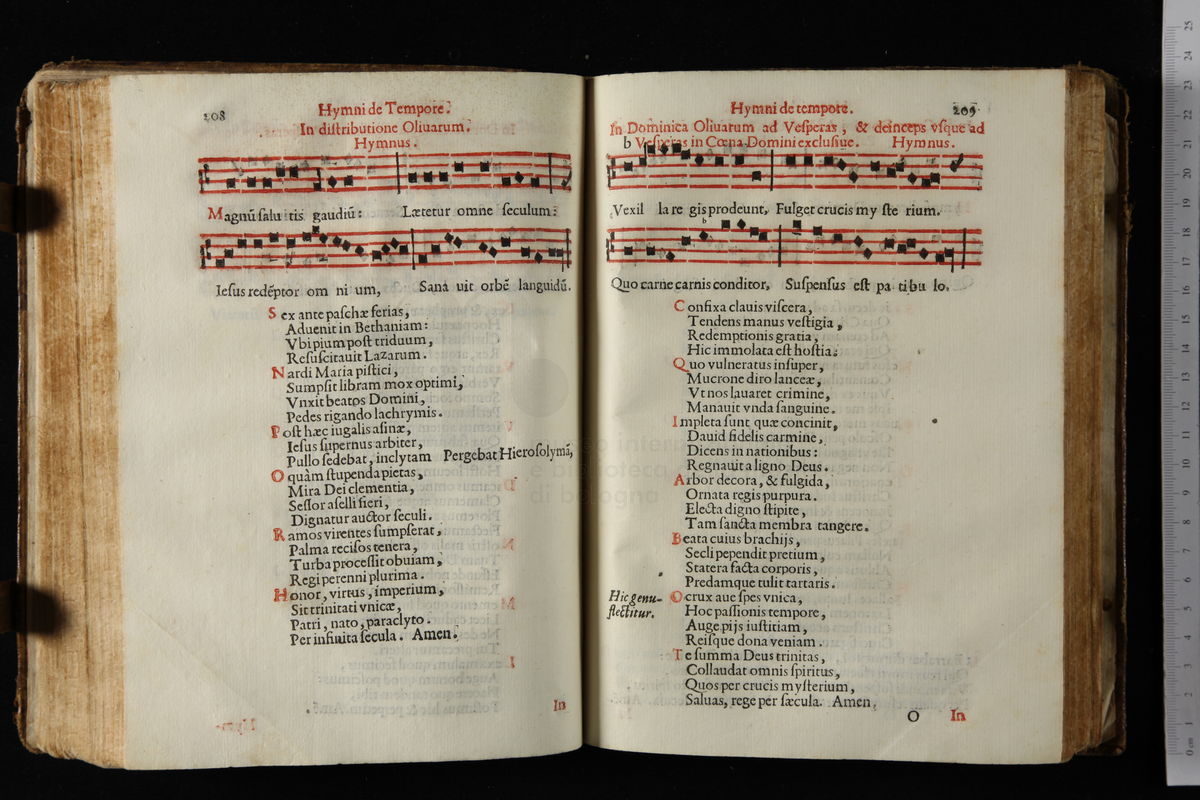 208
Hymni de Tempore.
In distributione Oliuarum.
Hymnus.
Magnū salu tis gaudiū: Lætetur omne seculum:
Iesus redēptor om ni um, Sana uit orbē languidū.
Sex ante paschæ ferias,
Aduenit in Bethaniam:
Vbi pium post triduum,
Resuscitauit Lazarum.
Nardi Maria pistici,
Sumpsit libram mox optimi,
Vnxit beatos Domini,
Pedes rigando lachrymis.
Post hæc iugalis asinæ,
Iesus supernus arbiter,
Pullo sedebat, inclytam Pergebat Hierosolymā,
O quàm stupenda pietas,
Mira Dei clementia,
Sessor aselli fieri,
Dignatur auctor seculi.
Ramos virentes sumpserat,
Palma recisos tenera,
Turba processit obuiam,
Regi perenni plurima.
Honor, virtus, imperium,
Sit trinitati vnicæ,
Patri, nato, paraclyto.
Per infinita secula. Amen.
In
Hymni de tempore.
209
In Dominica Oliuarum ad Vesperas, & deinceps vsque ad
b Vesperas in Cœna Domini exclusiue. Hymnus.
Vexil la re gis prodeunt, Fulget crucis my ste rium.
b
Quo carne carnis conditor, Suspensus est pa tibu lo.
Confixa clauis viscera,
Tendens manus vestigia,
Redemptionis gratia,
Hic immolata est hostia:
Quo vulneratus insuper,
Mucrone diro lanceæ,
Vt nos lauaret crimine,
Manauit vnda sanguine.
Impleta sunt quæ concinit,
Dauid fidelis carmine,
Dicens in nationibus:
Regnauit a ligno Deus.
Arbor decora, & fulgida,
Ornata regis purpura.
Electa digno stipite,
Tam sancta membra tangere.
Beata cuius brachijs,
Secli pependit pretium,
Statera facta corporis,
Predamque tulit tartaris.
Hic genu-
flectitur.
O crux aue spes vnica,
Hoc passionis tempore,
Auge pijs iustitiam,
Reisque dona veniam.
Te summa Deus trinitas,
Collaudat omnis spiritus,
Quos per crucis mysterium,
Saluas, rege per sæcula. Amen.
O In